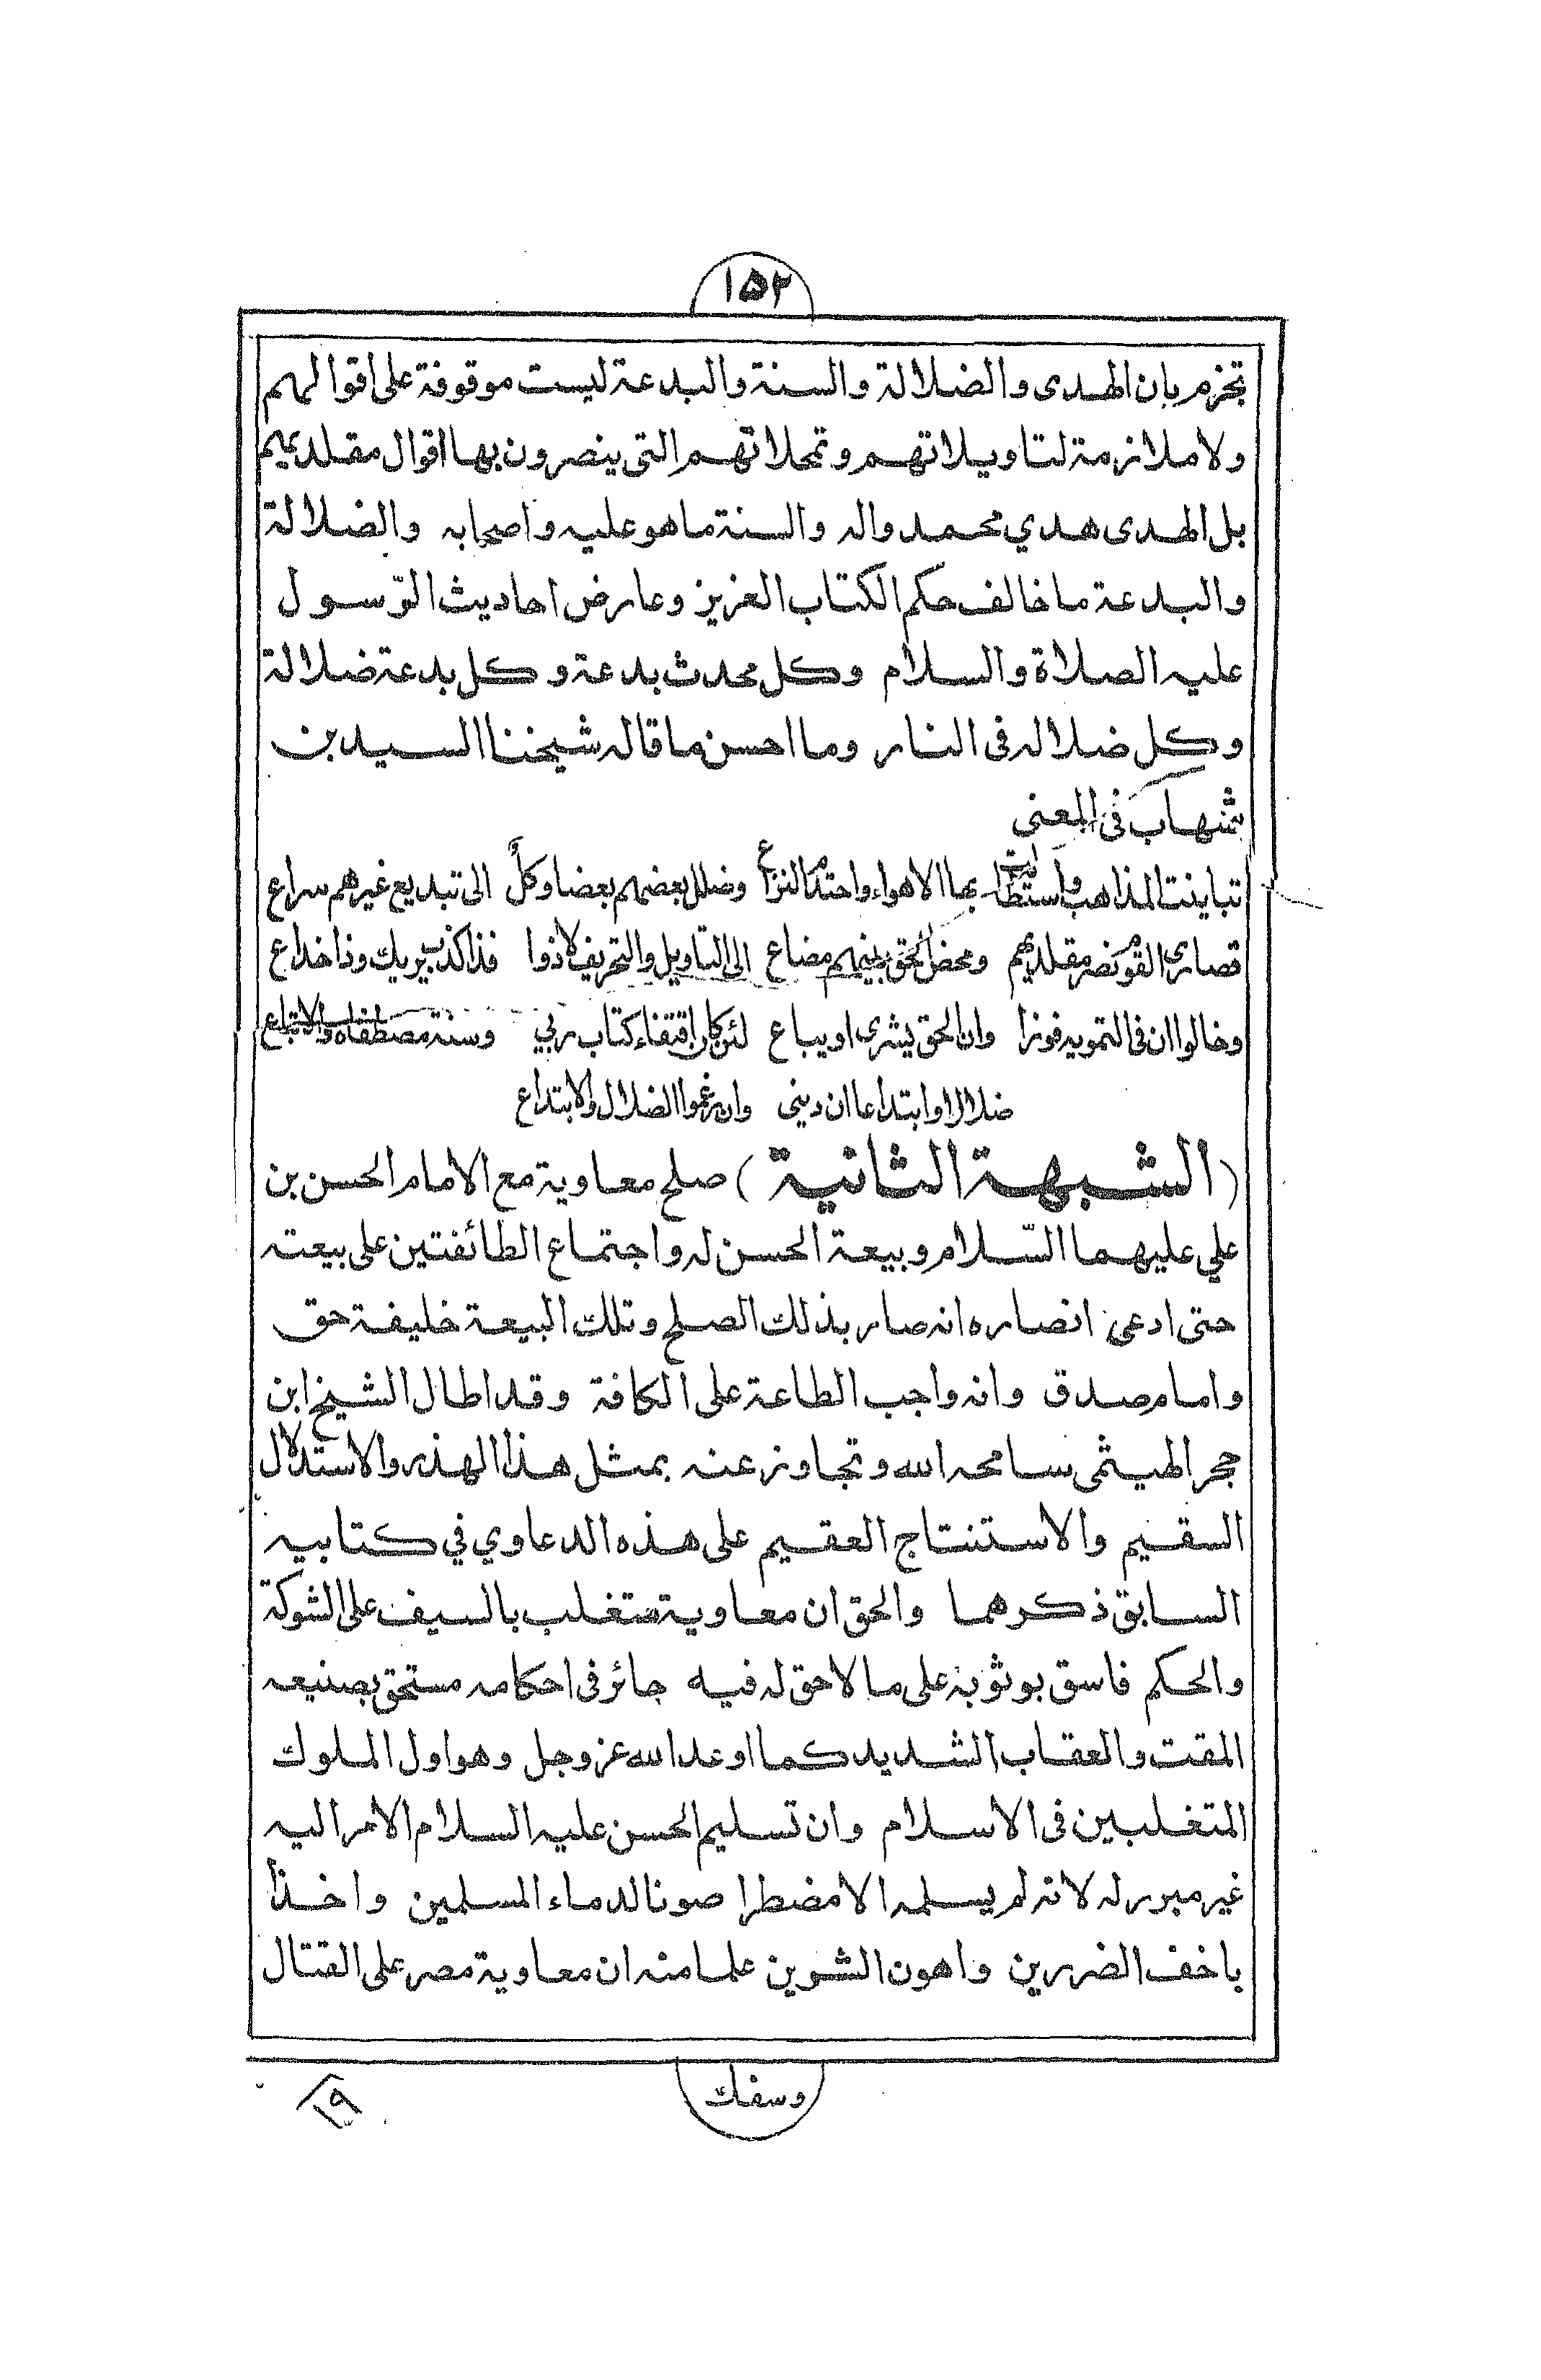 ١٥٢
تجزم بان الهدى والضلالة والسنة والبدعة ليست موقوفة على اقوالهم
ولا ملازمة لتاويلاتهم وتمحلاتهم التى ينصرون بها اقوال مقلديهم
بل الهدى هدي محمد واله والسنة ماهو عليه واصحابه والضلالة
والبدعة ما خالف حكم الكتاب العزيز وعارض احاديث الرّسول
عليه الصلاة والسلام وكل محدث بدعة وكل بدعة ضلالة
وكل ضلاله فى النار وما احسن ما قاله شيخنا السيد بن
شهاب فى المعنى
تباينت المذاهب واستطارت بها الاهواء واحتدم النزاع وضلل بعضهم بعضا وكلٌ الى تبديع غيرهم سراع
قصارى القوم نصر مقلديهم ومحض الحق بينهم مضاع الى التاويل والتحريف لاذوا فذا كذب يريك وذا خداع
وخالوا ان فى التمويه فوزا وان الحق يشرى او يباع لئن كان اقتفاء كتاب ربي وسنة مصطفاه والاتباع
ضلالا او ابتداعا ان ديني وان زعموا الضلال والابتداع
(الشبهة الثانية) صلح معاوية مع الامام الحسن بن
علي عليهما السّلام وبيعة الحسن له واجتماع الطائفتين على بيعته
حتى ادعى انصاره انه صار بذلك الصلح وتلك البيعة خليفة حق
وامام صدق وانه واجب الطاعة على الكافة وقد اطال الشيخ ابن
حجر الهيثمى سامحه الله وتجاوز عنه بمثل هذا الهذر والاستدلال
السقيم والاستنتاج العقيم على هذه الدعاوي في كتابيه
السابق ذكرهما والحق ان معاوية متغلب بالسيف على الشوكة
والحكم فاسق بوثوبه على ما لاحق له فيه جائر فى احكامه مستحق بصنيعه
المقت والعقاب الشديد كما اوعد الله عز وجل وهو اول الملوك
المتغلبين فى الاسلام وان تسليم الحسن عليه السلام الامر اليه
غير مبرر له لانه لم يسلمه الا مضطرا صونا لدماء المسلمين واخذا
باخف الضررين واهون الشرين علما منه ان معاوية مصر على القتال
وسفك
١٩